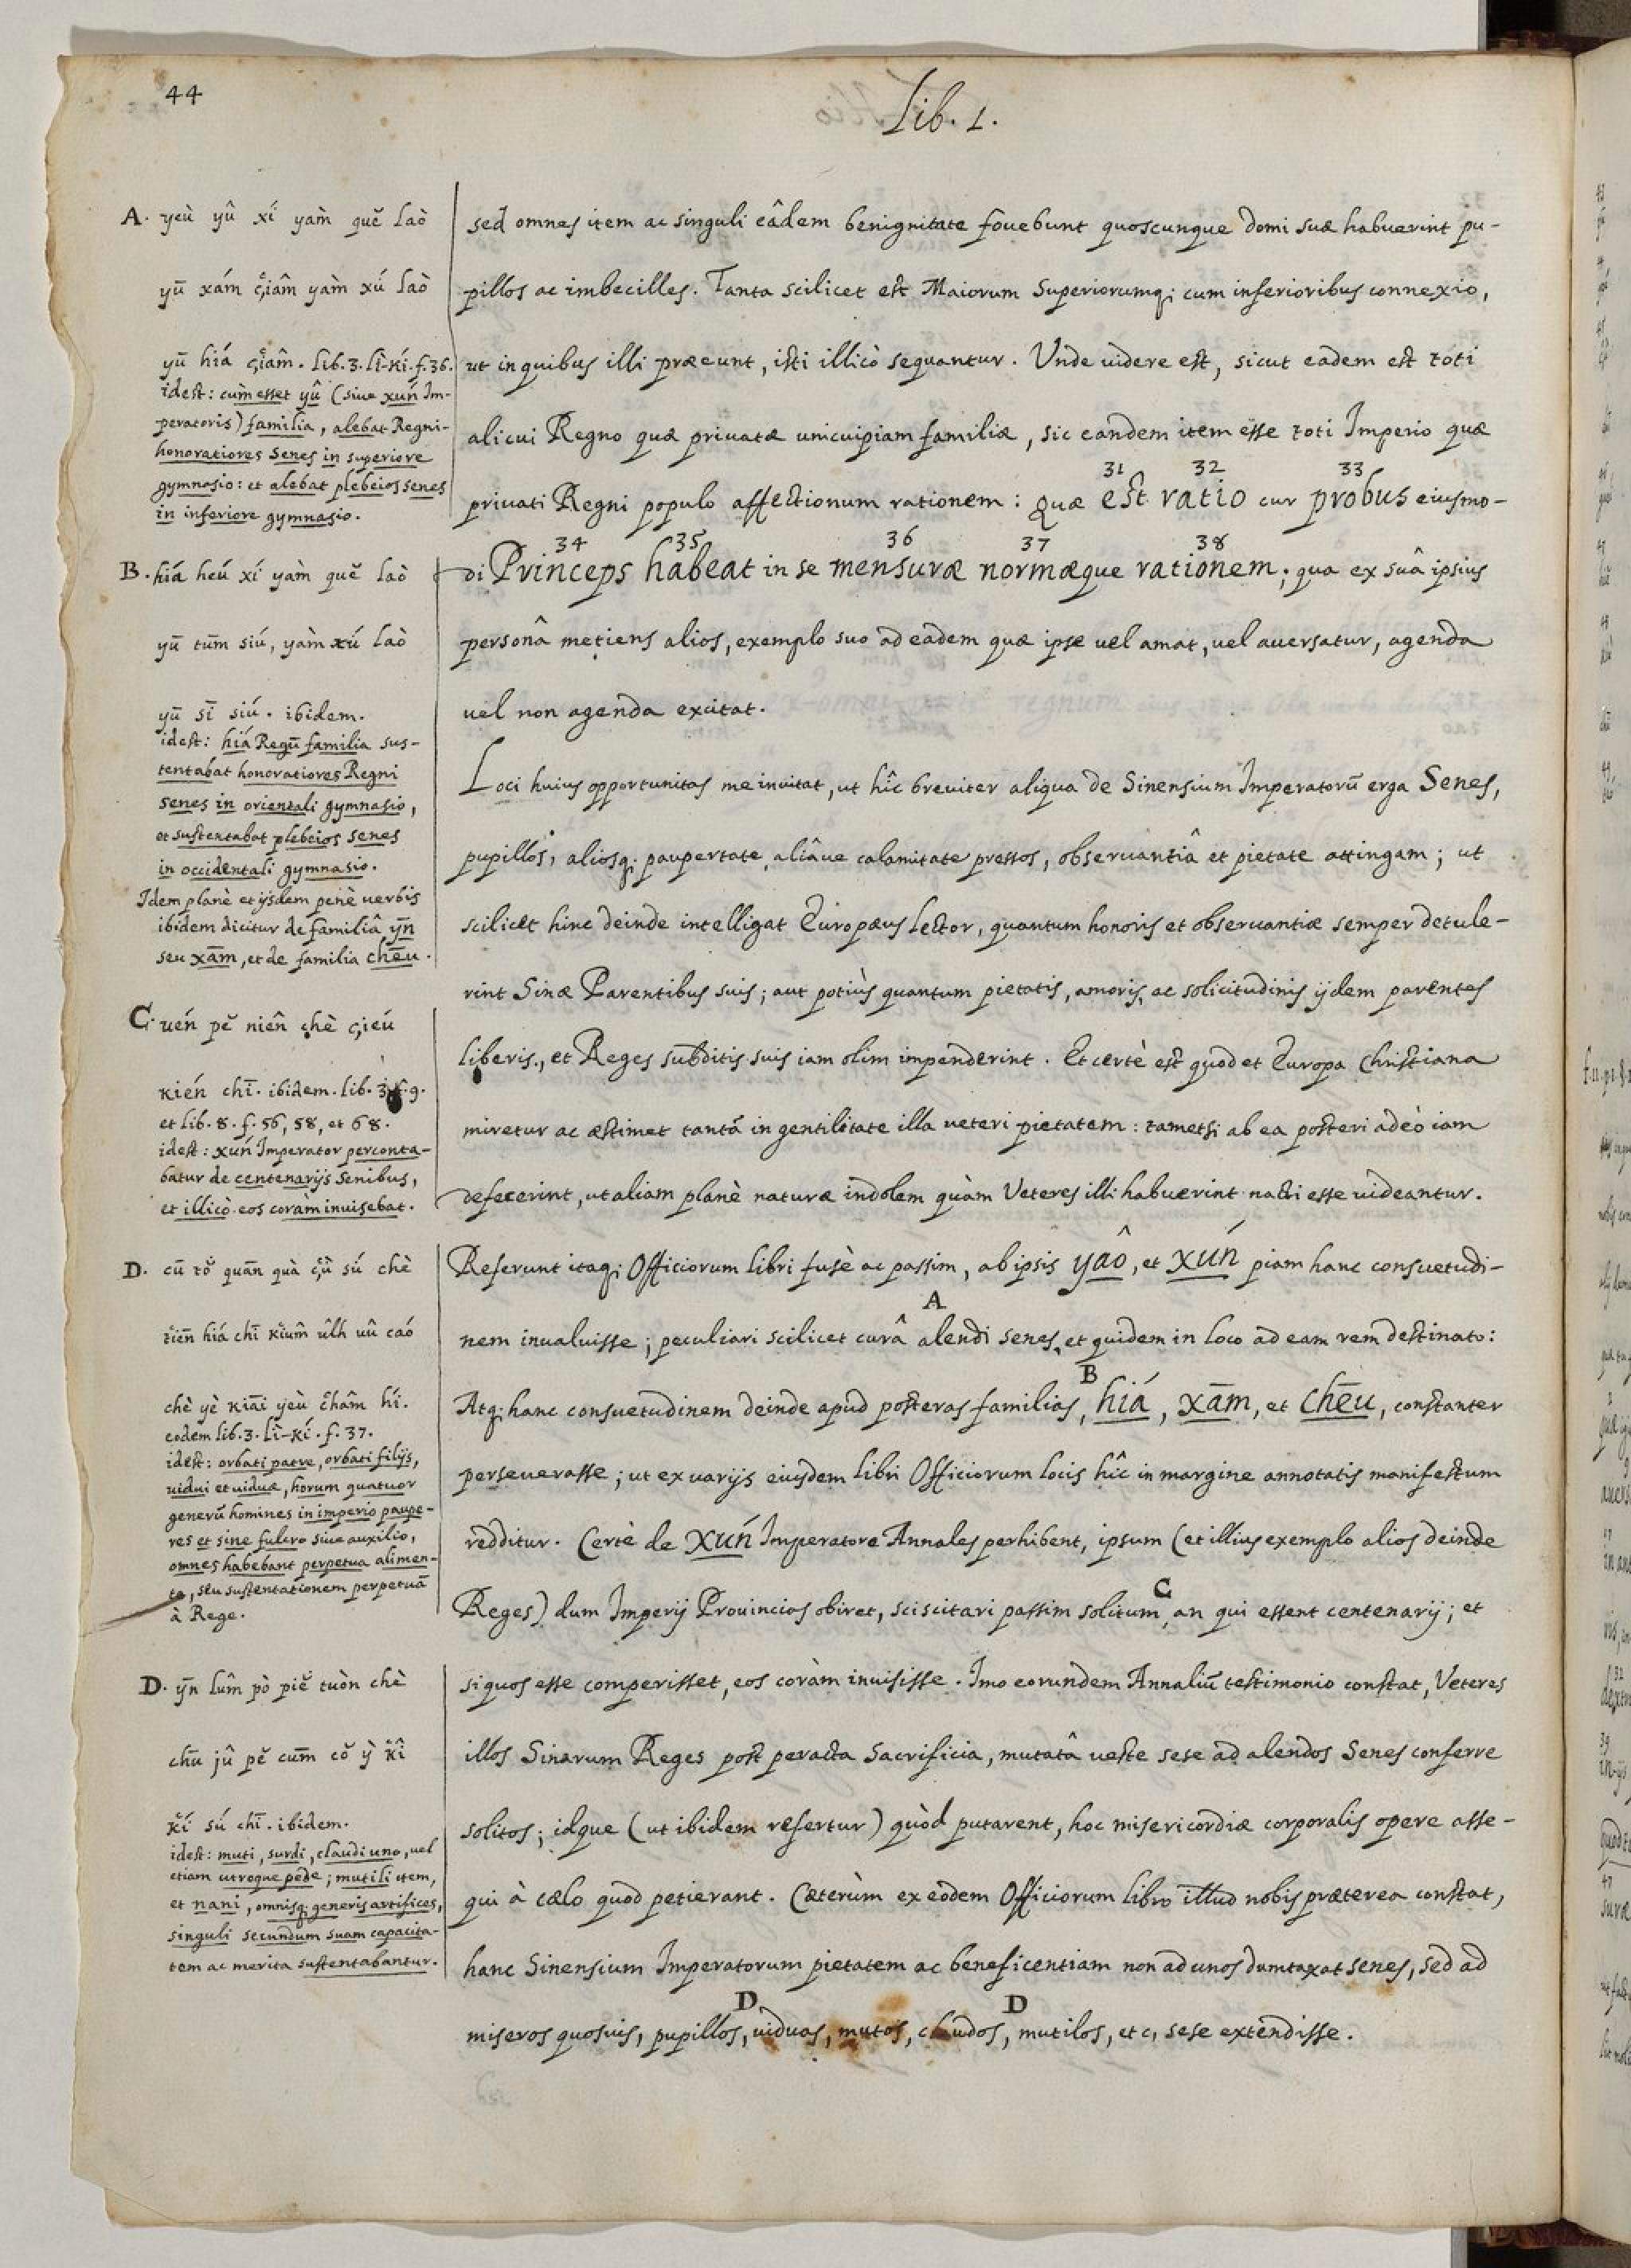 44
Lib. 1.
A. yeù yû xí yam̀ quĕ laò
yū xám çiâm yam̀ xú laò
yū hiá çiâm. lib. 3. lì-kí. f. 36.
idest: cùm esset yû (siue xún Im-
peratoris) familia, alebat Regni
honoratiores Senes in superiore
gymnasio: et alebat plebeios senes
in inferiore gymnasio.
B. hiá heú xí yam̀ quĕ laò
yū tūm siú, yàm xú laò
yū sī siú. ibidem.
idest: hiá Regū familia sus-
tentabat honoratiores Regni
senes in orientali gymnasio,
et sustentabat plebeios senes
in occidentali gymnasio.
Idem planè et ijsdem penè uerbis
ibidem dicitur de familiâ ȳn
seu xām, et de familia chēu.
C. uén pĕ niên chè çieú
kién chī. ibidem. lib. 3. f. 9.
et lib. 8. f. 56, 58, et 68.
idest: xún Imperator perconta-
batur de centenarijs Senibus,
et illicò eos coràm inuisebat.
D. cū tŏ quān quà çù sú chè
tiēn hiá chī kiûm ûlh uû caó
chè yè kiāi yeù châm hí.
eodem lib. 3. lì-kí. f. 37.
idest: orbati patre, orbati filijs,
uidui et uiduæ, horum quatuor
generū homines in imperio paupe-
res et sine fulcro siue auxilio,
omnes habebant perpetua alimen-
ta, seu sustentationem perpetuā
à Rege.
D. ȳn lûm pò piĕ tuòn chè
chū jû pĕ cūm cŏ ỳ kî
kí sú chī. ibidem.
idest: muti, surdi, claudi uno, uel
etiam utroque pede; mutili item,
et nani, omnisq; generis artifices,
singuli secundum suam capacita-
tem ac merita sustentabantur.
sed omnes item ac singuli eâdem benignitate fouebunt quoscunque domi suæ habuerint pu-
pillos ac imbecilles. Tanta scilicet est Maiorum Superiorumq; cum inferioribus connexio,
ut in quibus illi præeunt, isti illicò sequantur. Unde uidere est, sicut eadem est toti
alicui Regno quæ priuatæ unicuipiam familiæ, sic eandem item esse toti Imperio quæ
31 32 33
priuati Regni populo affectionum rationem: Quæ est ratio cur probus eiusmo-
34 35 36 37 38
di Princeps habeat in se mensuræ normæque rationem; qua ex suâ ipsius
personâ metiens alios, exemplo suo ad eadem quæ ipse uel amat, uel auersatur, agenda
uel non agenda excitat.
Loci huius opportunitas me inuitat, ut hîc breuiter aliqua de Sinensium Imperatorū erga Senes,
pupillos, aliosq; paupertate, aliâue calamitate pressos, obseruantiâ et pietate attingam; ut
scilicet hinc deinde intelligat Europæus Lector, quantum honoris et obseruantiæ semper detule-
rint Sinæ Parentibus suis; aut potiùs quantum pietatis, amoris, ac solicitudinis ijdem parentes
liberis, et Reges subditis suis iam olim impenderint. Et certè est quod et Europa Christiana
miretur ac æstimet tantā in gentilitate illa ueteri pietatem: tametsi ab ea posteri adeò iam
defecerint, ut aliam planè naturæ indolem quàm Veteres illi habuerint nacti esse uideantur.
Referunt itaq; Officiorum libri fusè ac passim, ab ipsis yaô, et xún piam hanc consuetudi-
A
nem inualuisse; peculiari scilicet curâ alendi senes, et quidem in loco ad eam rem destinato:
B
Atq; hanc consuetudinem deinde apud posteras familias, hiá, xām, et chēu, constanter
perseuerasse; ut ex uarijs eiusdem libri Officiorum locis hîc in margine annotatis manifestum
redditur. Certè de xún Imperatore Annales perhibent, ipsum (et illius exemplo alios deinde
C
Reges) dum Imperij Prouincias obiret, sciscitari passim solitum, an qui essent centenarij; et
siquos esse comperisset, eos coràm inuisisse. Imo eorundem Annaliū testimonio constat, Veteres
illos Sinarum Reges post peracta Sacrificia, mutatâ ueste sese ad alendos Senes conferre
solitos; idque (ut ibidem refertur) quòd putarent, hoc misericordiæ corporalis opere asse-
qui à cælo quod petierant. Cæterùm ex eodem Officiorum libro illud nobis præterea constat,
hanc Sinensium Imperatorum pietatem ac beneficentiam non ad unos dumtaxat senes, sed ad
D D
miseros quosuis, pupillos, uiduas, mutos, claudos, mutilos, etc, sese extendisse.